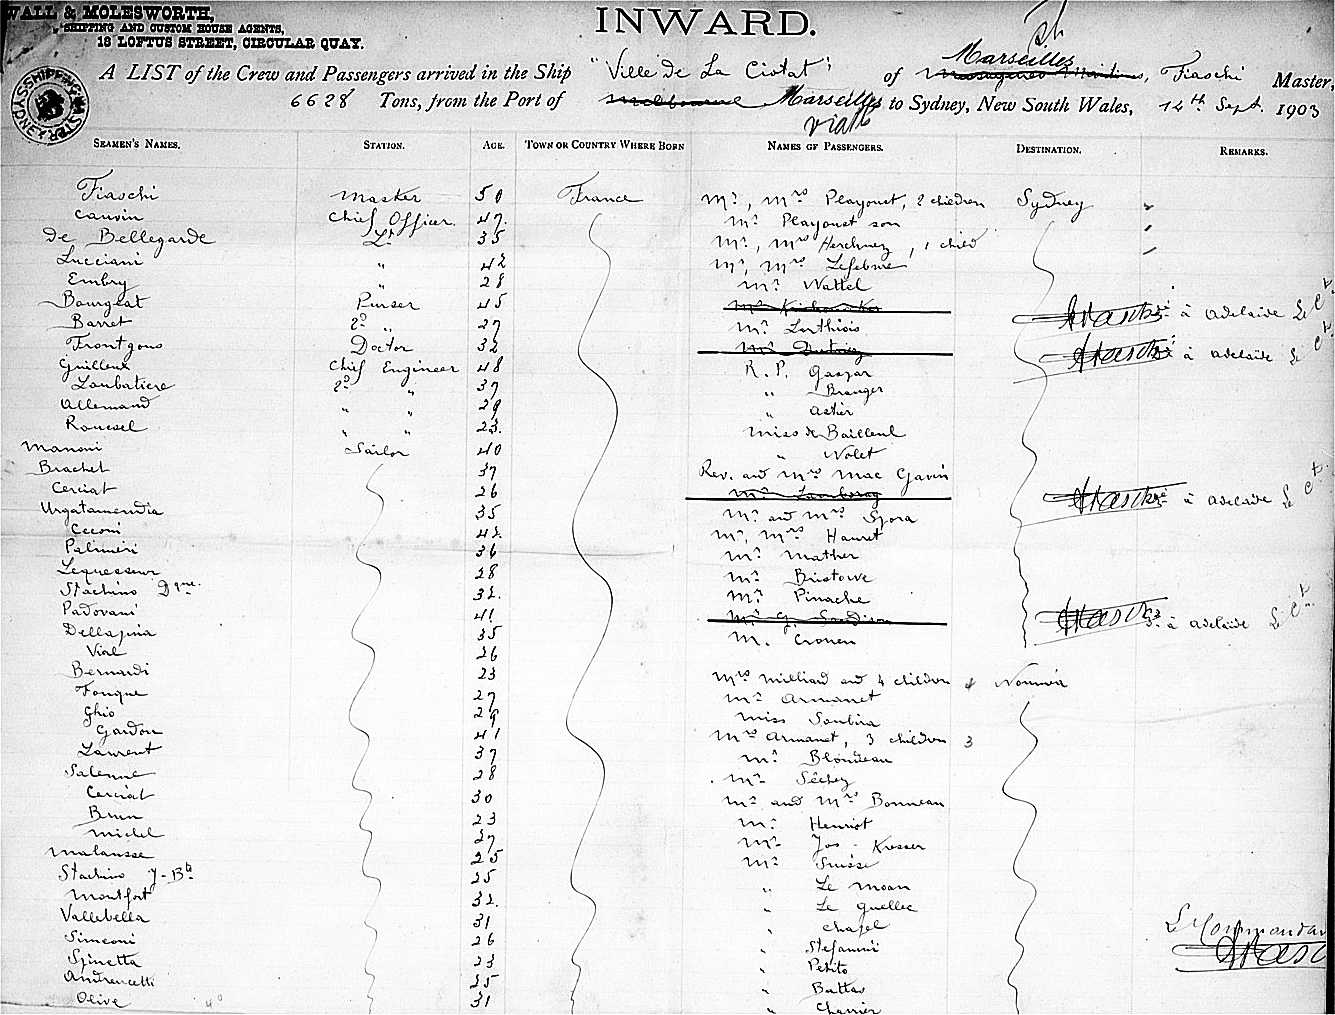 WALL & MOLESWORTH,
SHIPPING AND CUSTOM HOUSE AGENTS,
18 LOFTUS STREET, CIRCULAR QUAY.
INWARD.
SHIPPING MASTER SYDNEY
A LIST of the Crew and Passengers arrived in the Ship "Ville de La Ciotat" of Marseilles, Fiaschi Master,
6628 Tons, from the Port of Melbourne Marseilles to Sydney, New South Wales, 14th Sept. 1903
via
SEAMEN'S NAMES. STATION. AGE. TOWN OR COUNTRY WHERE BORN NAMES OF PASSENGERS. DESTINATION. REMARKS.
Fiaschi Master 50 France Mr, Mrs Playoust, 2 children Sydney
Cauvin Chief Officer 47. Mr Playoust son
de Bellegarde Lt 35 Mr, Mrs , 1 child
Lucciani " 42 Mr, Mrs Lefebvre
Embry " 28 Mr Wattel
Bourgeat Purser 45 à adelaide
Barret 2d " 27 Mr Lorthiois
Frontgous Doctor 32 à adelaide
Guilleux Chief Engineer 48 R. P. Gaspar
Loubatiere 2d " 37 " Branger
Allemand " " 29 " Astier
Roussel " " 23. Miss de Bailleul
Manoni Sailor 40 " Nolet
Brachet 37 Rev. and Mrs Mac Gavin
Cerciat 26 à adelaide
Urgatamendia 35 Mr and Mrs Spora
Cecconi 42. Mr, Mrs Hauret
Palmieri 36 Mr Mather
Lequesseur 28 Mr Bristowe
Stachino Dque. 32. Mr Pinache
Padovani 41 à adelaide
Dellapina 35 M. Cronen
Vial 26
Bernardi 23 Mrs Milliard and 4 children 4 Noumea
Fouque 27 Mr Armanet
Ghio 29 Miss Soubira
Gardon 41 Mrs Armanet, 3 children 3
Laurent 37 Mr Blondeau
Salenne 28 Mr Séchey
Cerciat 30 Mr and Mrs Bonneau
Brun 23 Mr Henriot
Michel 27 Mr Jos. Kresser
Malausse 25 Mr Suisse
Stachino J-Bte 25 " Le Moan
Montfort 32. " Le Quellec
Vallebella 31 " Chapel
Simeoni 26 " Stefanini
Spinetta 23 " Petito
Andreucetti 25 " Buttas
Olive 31 " Charrier
Le Commandant